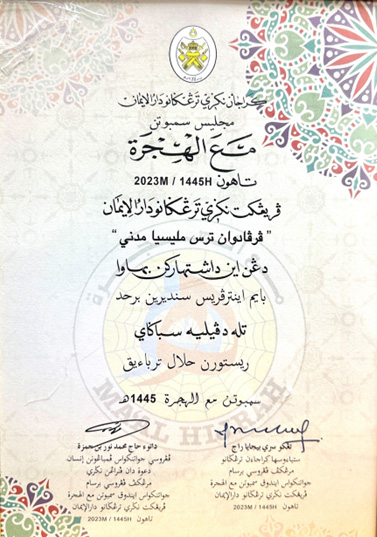 كراجأن نڬري ترڠڬانو دارالإيمان
مجليس سمبوتن
مَعَ الْهِجْرَة
تاهون 1445H / 2023M
ڤريڠكت نڬري ترڠڬانو دارالإيمان
"ڤرڤادوان ترس مليسيا مدني"
دڠن اين داشتهاركن بهاوا
بايم اينترڤريس سنديرين برحد
تله دڤيليه سباڬاي
ريستورن حلال ترباءيق
سمبوتن مع الهجرة 1445هـ
داتوء حاج محمد نور بن حمزة
ڤڠروسي جواتنكواس ڤمباڠونن إنسان
دعوة دان ڤنراڠن نڬري
مرڠكڤ ڤڠروسي برسام
جواتنكواس ايندوق سمبوتن مع الهجرة
ڤريڠكت نڬري ترڠڬانو دارالإيمان
تاهون 1445H / 2023M
تڠكو سري بيجايا راج
ستياءوسها كراجأن ترڠڬانو
مرڠكڤ ڤڠروسي برسام
جواتنكواس ايندوق سمبوتن مع الهجرة
ڤريڠكت نڬري ترڠڬانو دارالإيمان
تاهون 1445H / 2023M
MAAL HIJRAH